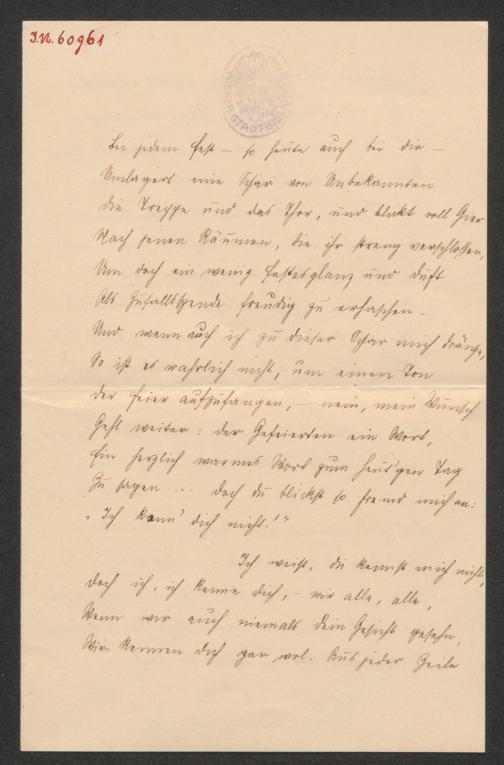 I.N. 60961
WIENER STADTBIBLIOTHEK
Bei jedem Fest – so heute auch bei dir –
Umlagert eine Schar von Unbekannten
Die Treppe und das Thor, und blickt voll Gier
Nach jenen Räumen, die ihr streng verschlossen,
Um doch ein wenig Festesglanz und Duft
Als Zufallsspende freudig zu erhaschen.
Und wenn auch ich zu dieser Schar mich dränge,
So ist es wahrlich nicht, um einen Ton
Der Feier aufzufangen, – nein, mein Wunsch
Geht weiter: der Gefeierten ein Wort,
Ein herzlich warmes Wort zum heut'gen Tag
Zu sagen .... Doch du blickst so fremd mich an:
„Ich kenn' dich nicht!"
Ich weiß, du kennst mich nicht,
Doch ich, ich kenne dich, – wir alle, alle,
Wenn wir auch niemals dein Gesicht gesehn,
Wir kennen dich gar wol. Aus jeder Zeile